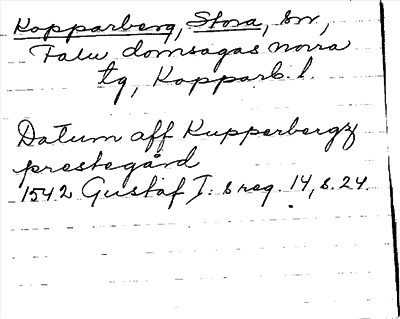 Kopparberg, Stora, sn,
Falu domsagas norra
tg, Kopparb. l.
Datum aff Kupperbergz
prestegård
1542 Gustaf I:s reg. 14, s. 24.